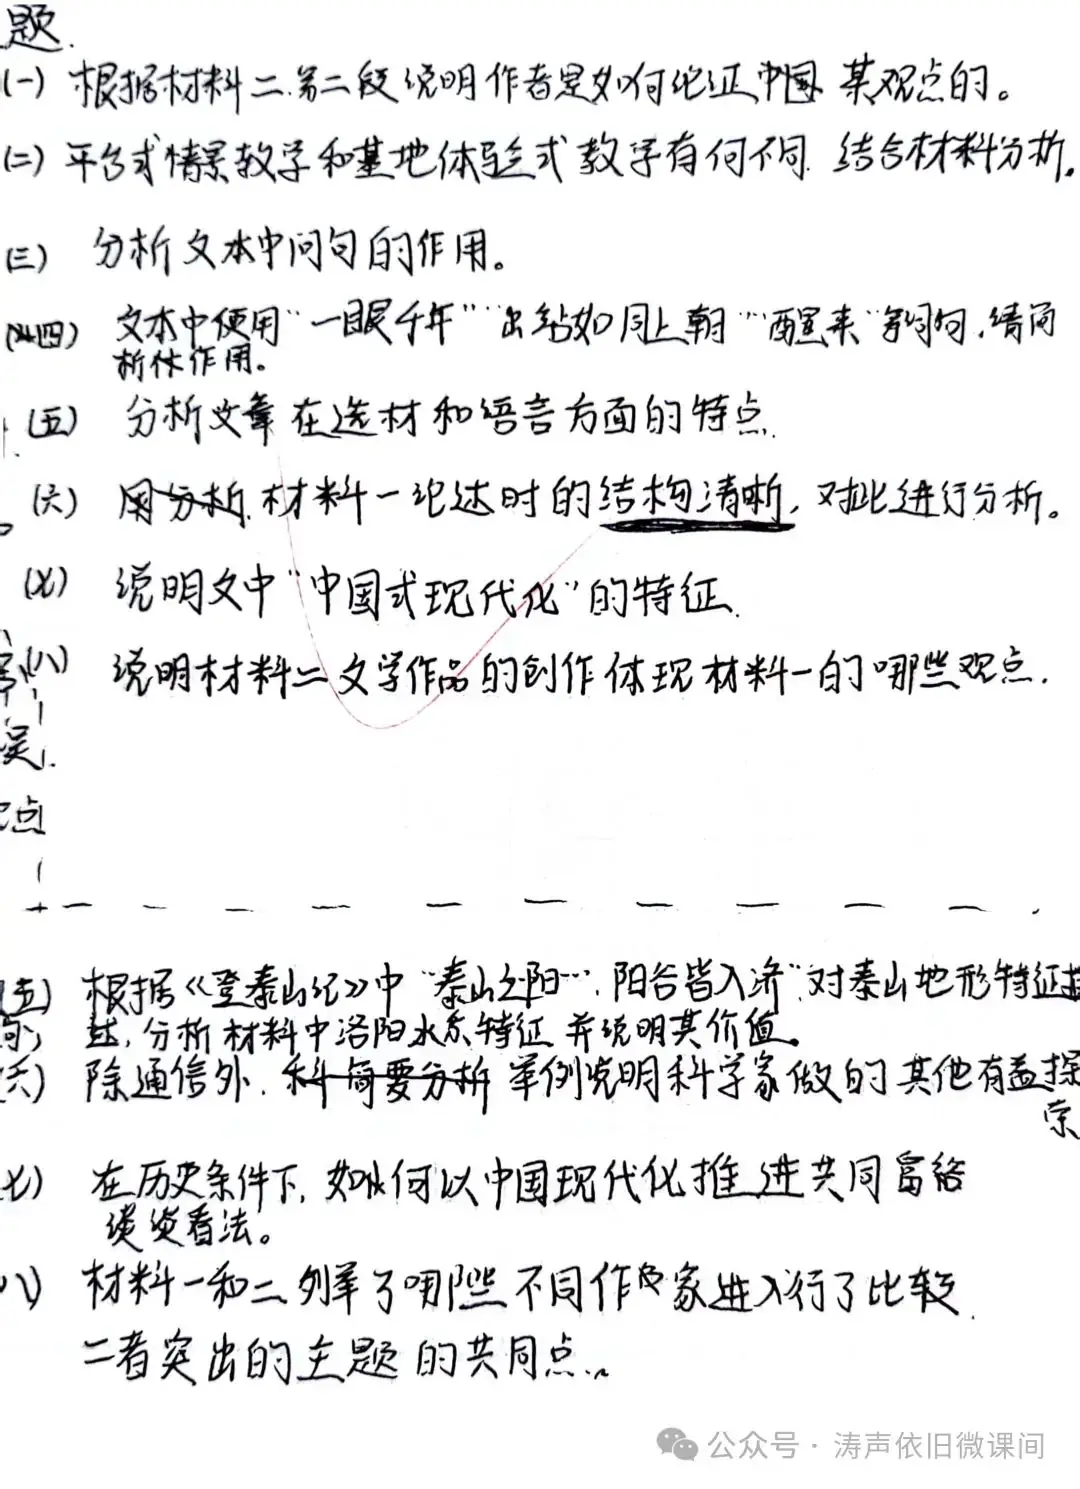 题.
(一) 根据材料二.第二段说明作者是如何论证中国 某观点的。
(二) 平台式情景教学和基地体验式教学有何不同. 结合材料分析.
(三) 分析文本中问句的作用。
(四) 文本中使用"一眼千年""出站如同上朝""醒来"等词句,请简
析其作用。
(五) 分析文章在选材和语言方面的特点.
(六) 材料一论述时的结构清晰,对此进行分析。
(七) 说明文中"中国式现代化"的特征.
(八) 说明材料二文学作品的创作体现材料一的哪些观点.
误.
点
(五) 根据《登泰山记》中"泰山之阳…,阳谷皆入济"对泰山地形特征描
述,分析材料中洛阳水系特征并说明其价值。
(六) 除通信外. 举例说明科学家做的其他有益探
索
七) 在历史条件下,如何以中国现代化推进共同富裕
谈谈看法。
八) 材料一和二列举了哪些不同作家进行了比较.
二者突出的主题的共同点.
公众号·涛声依旧微课间